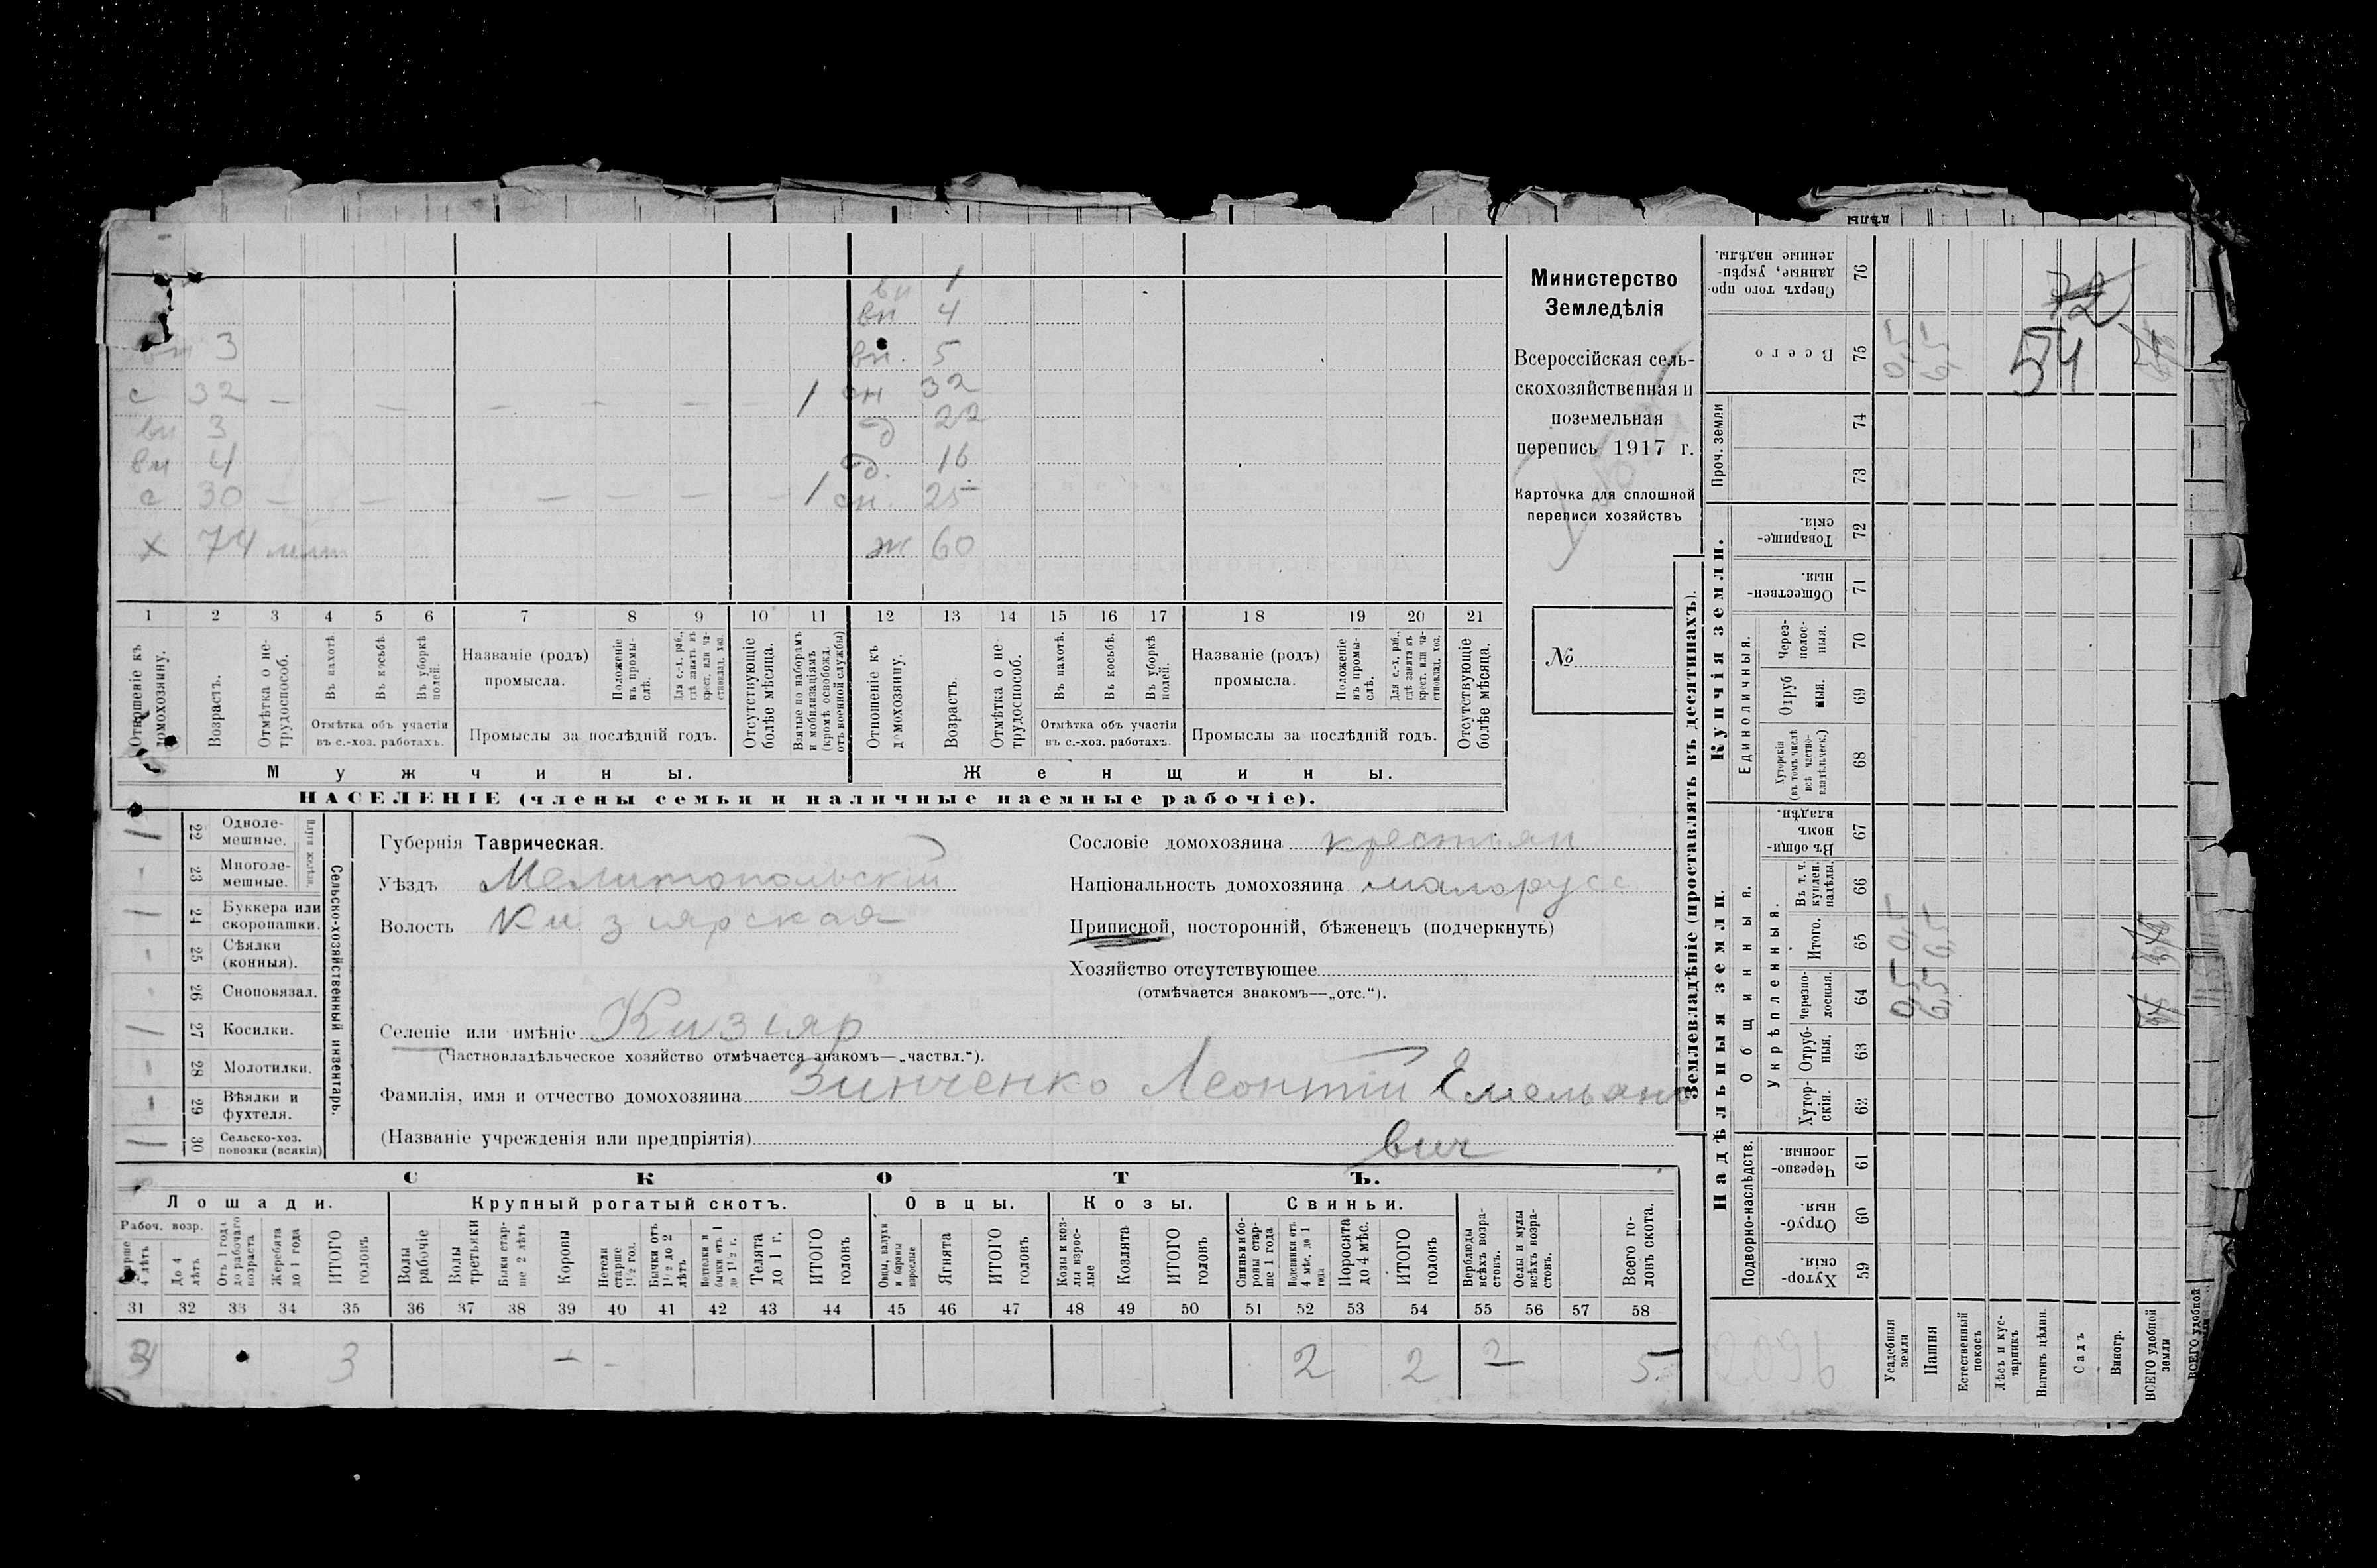 вн 1
вн 4
вн 3 вн. 5
с 32 — — — — — — 1 сн 32
вн 3 д 22
вн 4 д. 16
с 30 — — — — — — 1 сн. 25
х 74 ж 60
1 2 3 4 5 6 7 8 9 10 11 12 13 14 15 16 17 18 19 20 21
Отношеніе къ домохозяину.
Возрастъ.
Отмѣтка о не-трудоспособ.
Въ пахотѣ.
Въ косьбѣ.
Въ уборкѣ полей.
Отмѣтка объ участіи въ с.-хоз. работахъ.
Названіе (родъ) промысла.
Положеніе въ промы-слѣ.
Для с.-х. раб., гдѣ занятъ въ крест. или ча-стновлад. хоз.
Промыслы за послѣдній годъ.
Отсутствующіе болѣе мѣсяца.
Взятые по наборамъ и мобилизаціямъ (кромѣ освобожд. отъ военной службы)
Отношеніе къ домохозяину.
Возрастъ.
Отмѣтка о не-трудоспособ.
Въ пахотѣ.
Въ косьбѣ.
Въ уборкѣ полей.
Отмѣтка объ участіи въ с.-хоз. работахъ.
Названіе (родъ) промысла.
Положеніе въ промы-слѣ.
Для с.-х. раб., гдѣ занята въ крест. или ча-стновлад. хоз.
Промыслы за послѣдній годъ.
Отсутствующіе болѣе мѣсяца.
Мужчины. Женщины.
НАСЕЛЕНІЕ (члены семьи и наличные наемные рабочіе).
Министерство
Земледѣлія
Всероссійская сель-
скохозяйственная и
поземельная
перепись 1917 г.
Карточка для сплошной
переписи хозяйствъ
№
22 Одноле-мешные.
23 Многоле-мешные.
24 Буккера или скоропашки.
25 Сѣялки (конныя).
26 Сноповязал.
27 Косилки.
28 Молотилки.
29 Вѣялки и фухтеля.
30 Сельско-хоз. повозки (всякія)
Сельско-хозяйственный инвентарь.
Губернія Таврическая.
Уѣздъ Мелитопольскій
Волость Кизіярская
Селеніе или имѣніе Кизіяр
(Частновладѣльческое хозяйство отмѣчается знакомъ—„частвл.“).
Фамилія, имя и отчество домохозяина Зинченко Леонтій Емельяно
вич
(Названіе учрежденія или предпріятія)
Сословіе домохозяина крестьян
Національность домохозяина малорусс
Приписной, посторонній, бѣженецъ (подчеркнуть)
Хозяйство отсутствующее
(отмѣчается знакомъ—„отс.“).
СКОТЪ.
Лошади. Крупный рогатый скотъ. Овцы. Козы. Свиньи.
Рабоч. возр.
Старше 4 лѣтъ
До 4 лѣтъ
Отъ 1 года до рабочаго возраста
Жеребята до 1 года
ИТОГО головъ
Волы рабочіе
Волы третьяки
Быки стар-ше 2 лѣтъ
Коровы
Нетели старше 1½ год.
Бычки отъ 1½ до 2 лѣтъ
Нетелки и бычки отъ 1 до 1½ г.
Телята до 1 г.
ИТОГО головъ
Овцы, валухи и бараны взрослые
Ягнята
ИТОГО головъ
Козы и коз-лы взрос-лые
Козлята
ИТОГО головъ
Свиньи и бо-ровы стар-ше 1 года
Подсвинки отъ 4 мѣс. до 1 года
Поросята до 4 мѣс.
ИТОГО головъ
Верблюды всѣхъ возра-стовъ.
Ослы и мулы всѣхъ возра-стовъ.
Всего го-ловъ скота.
31 32 33 34 35 36 37 38 39 40 41 42 43 44 45 46 47 48 49 50 51 52 53 54 55 56 57 58
3 3 — - 2 2 5.
Землевладѣніе (проставлять въ десятинахъ).
Надѣльныя земли. Купчія земли.
Подворно-наслѣдств.
Хутор-скія. 59
Отруб-ныя. 60
Черезпо-лосныя. 61
Общинныя.
Укрѣпленныя.
Хутор-скія. 62
Отруб-ныя. 63
Черезпо-лосныя. 64
Итого. 65
Въ т. ч. куплен. надѣлы. 66
Въ общи-номъ владѣн. 67
Единоличныя.
Хуторскія (въ томъ числѣ всѣ частно-владѣльческ.) 68
Отруб ныя. 69
Через-полос-ныя. 70
Обществен-ныя. 71
Товарище-скія. 72
Проч. земли
73 74
Всего 75
Сверхъ того про-данные, укрѣп-ленные надѣлы. 76
Усадебныя земли 0,5 0,5 0,5
Пашня 6,5 6,5 6,5
Естественный покосъ
Лѣсъ и кус-тарникъ
Выгонъ цѣлин.
Садъ
Виногр.
ВСЕГО удобной земли
72
54
ВСЕГО удобной
дѣлы